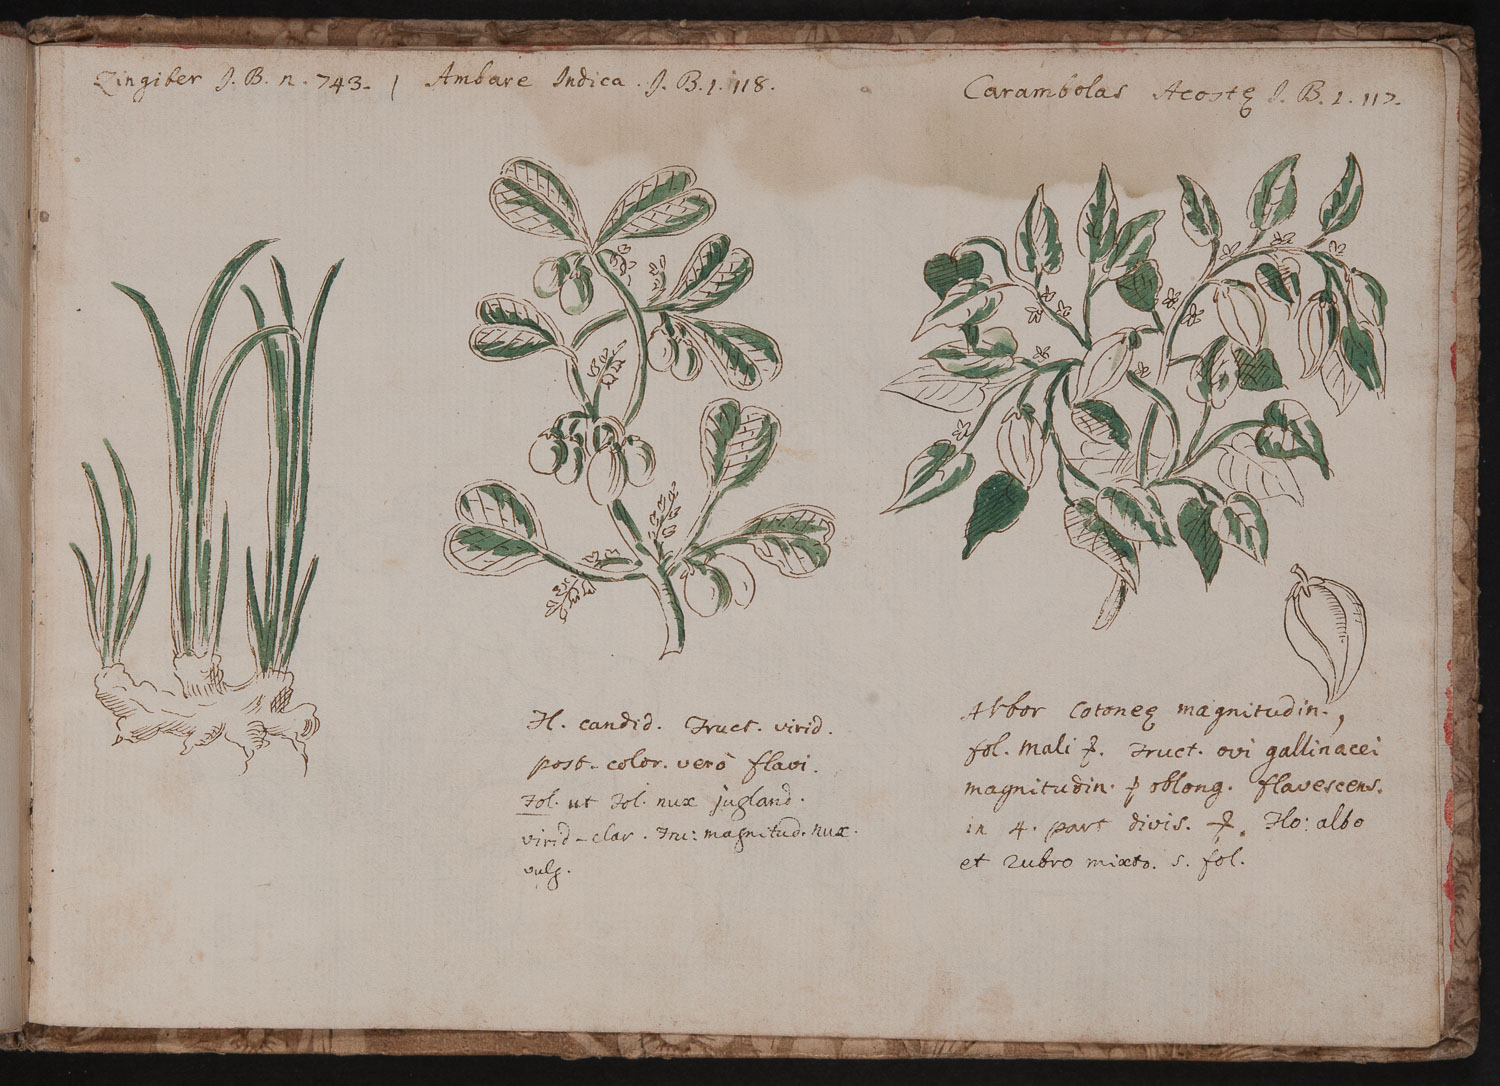 Zingiber J. B. n. 743.
Ambare Indica. J. B. 1. 118.
Carambolas Acostę J. B. 1. 117.
Fl. candid. Fruct. virid.
post. color. verò flavi.
Fol. ut Fol. nux jugland.
virid-clar. Fru: magnitud. nux.
vulg.
Arbor Cotoneę magnitudin.,
fol. mali. Fruct. ovi gallinacei
magnitudin. oblong. flavescens.
in 4. part divis. Flo: albo
et rubro mixto. s. fol.